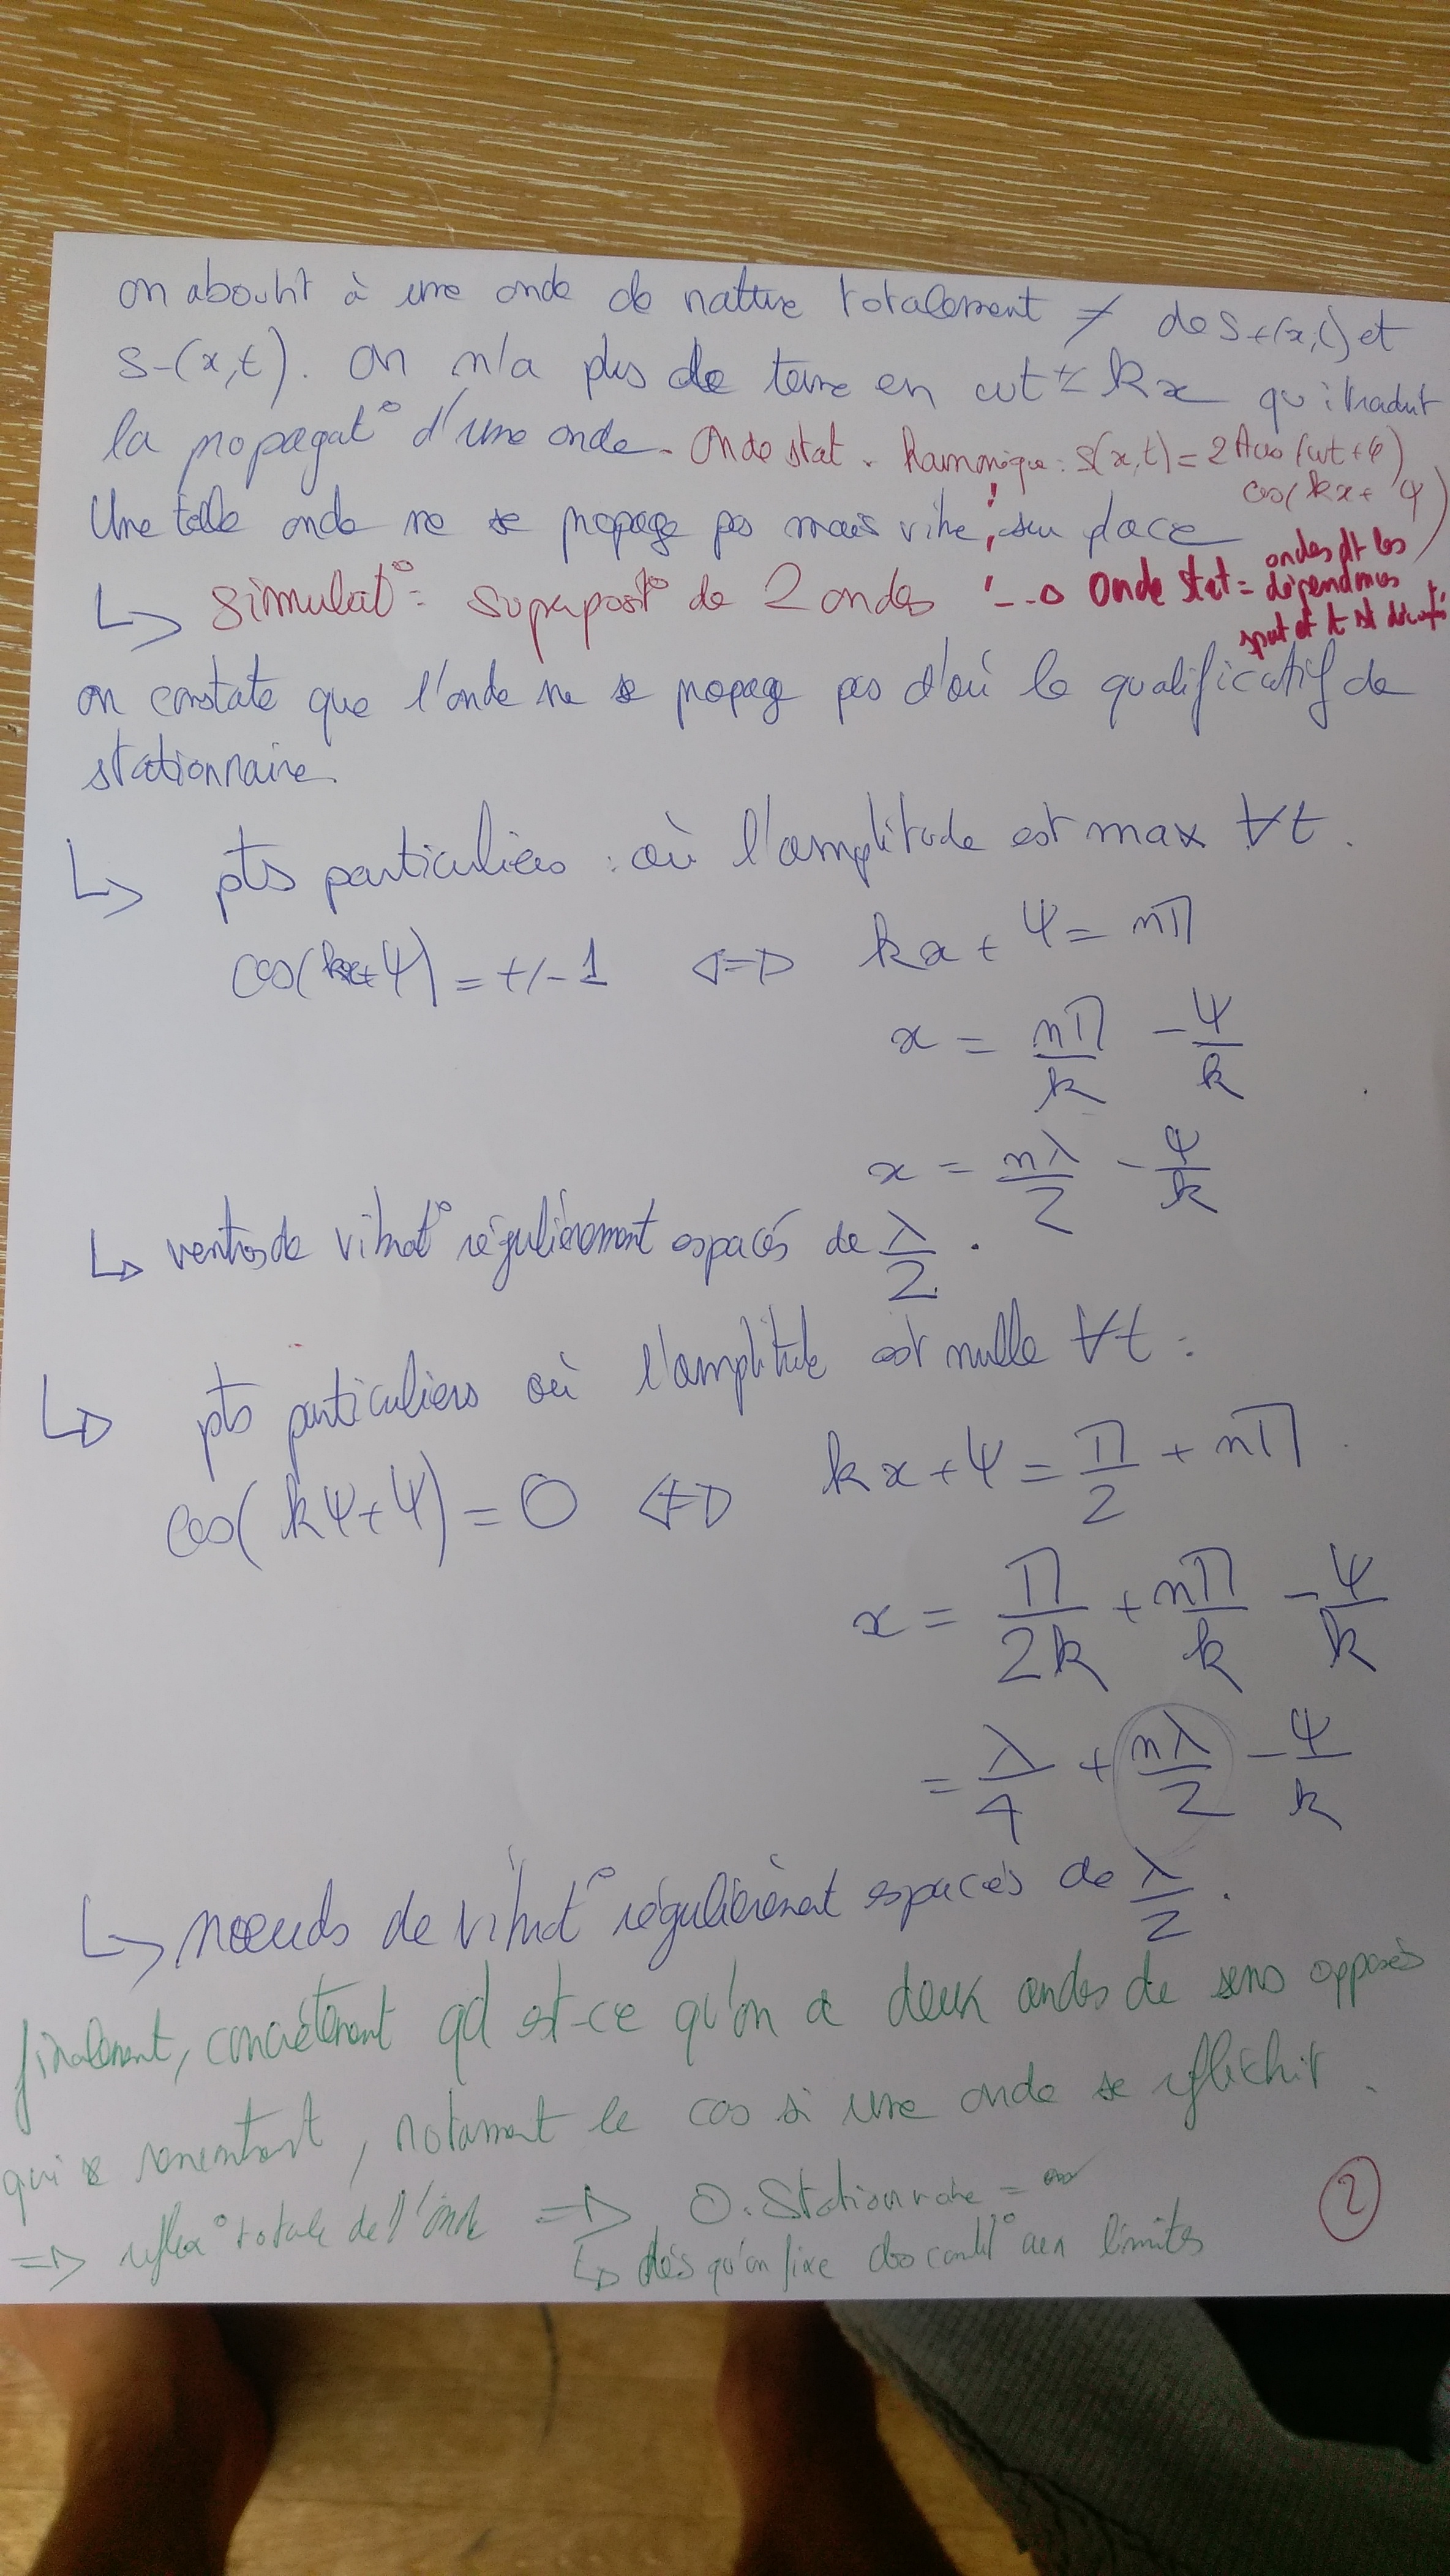 on aboutit à une onde de nature totalement ≠ de S+(x,t) et
S-(x,t). On n'a plus de terme en ωt ± kx qui traduit
la propagat° d'une onde. Onde stat. Harmonique : S(x,t) = 2A cos(ωt+φ)
cos(kx+ψ)
Une telle onde ne se propage pas mais vibre sur place
ondes dt les
↳ Simulat° : superposit° de 2 ondes --> Onde stat = dépendances
spat et t st découplées
on constate que l'onde ne se propage pas d'où le qualificatif de
stationnaire.
↳ pts particuliers : où l'amplitude est max ∀t.
cos(kx+ψ) = +/-1 <=> kx + ψ = nπ
x = nπ/k - ψ/k
x = nλ/2 - ψ/k
↳ ventres de vibrat° régulièrement espacés de λ/2.
↳ pts particuliers où l'amplitude est nulle ∀t :
cos(kψ+ψ) = 0 <=> kx + ψ = π/2 + nπ
x = π/2k + nπ/k - ψ/k
= λ/4 + nλ/2 - ψ/k
↳ nœuds de vibrat° régulièrement espacés de λ/2.
finalement, concrètement qd est-ce qu'on a deux ondes de sens opposés
qui se rencontrent, notamment le cas si une onde se réfléchit.
=> réflex° totale de l'onde => O. Stationnaire =
↳ dès qu'on fixe des condit° aux limites
2